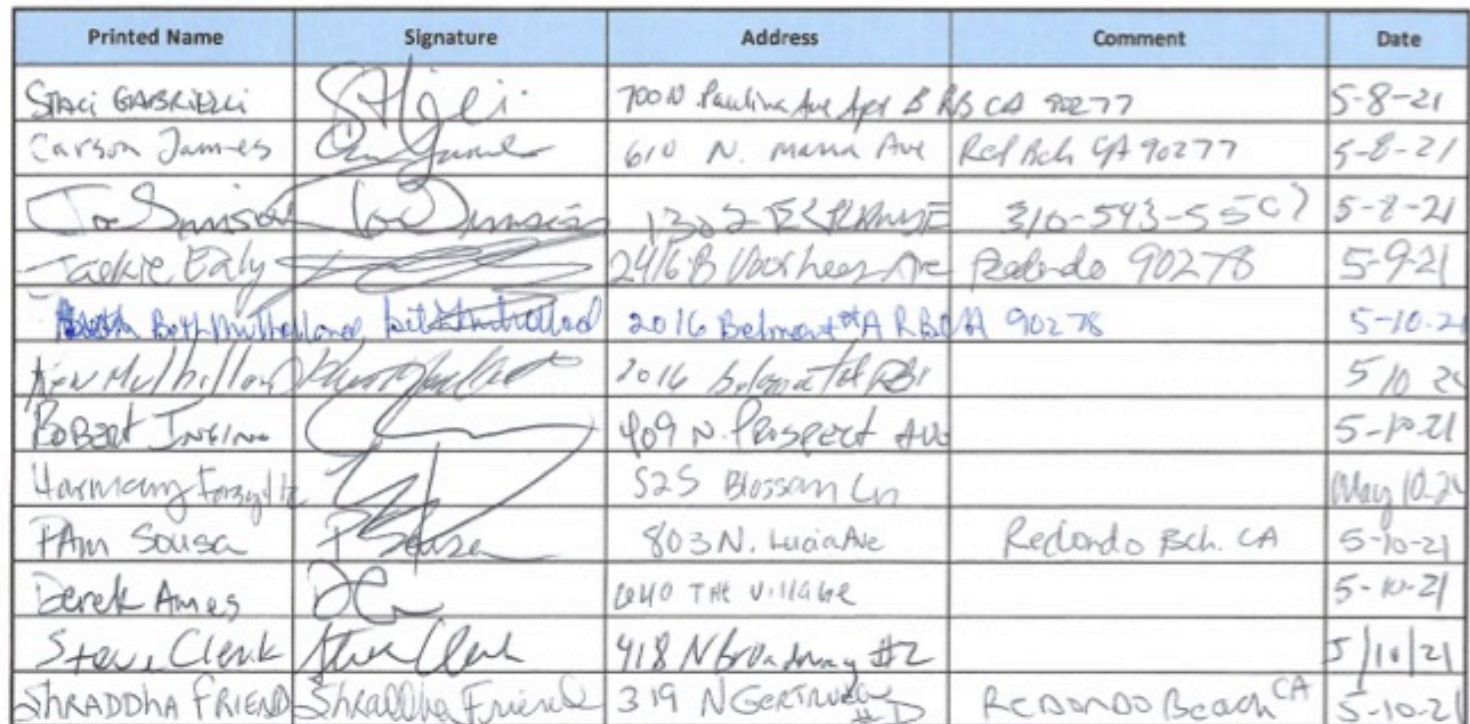 Printed Name Signature Address Comment Date
Staci Gabrielli 700 N. Paulina Ave Apt B RB CA 90277 5-8-21
Carson James 610 N. Maria Ave Red Bch CA 90277 5-8-21
Joe 1302 310-543-5507 5-8-21
Jackie Ealy 2416 B Voorhees Ave Redondo 90278 5-9-21
Beth Mulholland 2016 Belmont #A RB CA 90278 5-10-21
2016 5 10
Robert 409 N. Prospect Ave 5-10-21
Harmony 525 Blossom Ln May 10-21
PAm Sousa P Sousa 803 N. Lucia Ave Redondo Bch. CA 5-10-21
Derek Ames 640 THE VillAGE 5-10-21
Steve Clenk Steve Clenk 418 N Broadway #2 5/10/21
ShRADDhA FRIEND Shraddha Friend 319 N GERTRUDA #D REDONDO Beach CA 5-10-21